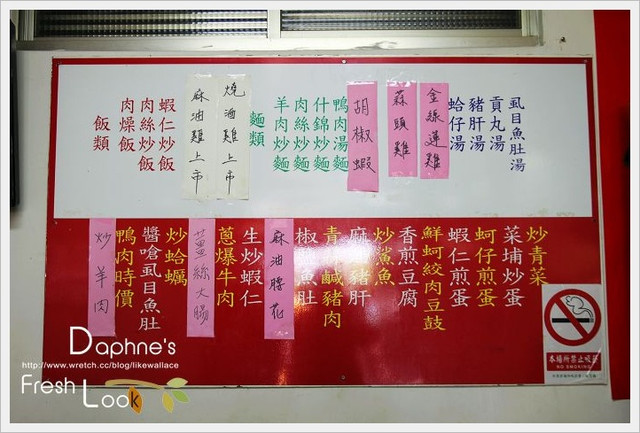 虱目魚肚湯
貢丸湯
豬肝湯
蛤仔湯
金絲蓮雞
蒜頭雞
胡椒蝦
鴨肉湯麵
什錦炒麵
肉絲炒麵
羊肉炒麵
麵類
燒酒雞上市
麻油雞上市
蝦仁炒飯
肉絲炒飯
肉燥飯
飯類
炒青菜
菜埔炒蛋
蚵仔煎蛋
蝦仁煎蛋
鮮蚵絞肉豆鼓
香煎豆腐
炒鯊魚
麻油豬肝
青蒜鹹豬肉
椒鹽魚肚
麻油腰花
生炒蝦仁
蔥爆牛肉
薑絲大腸
炒蛤蠣
醬嗆虱目魚肚
鴨肉時價
炒羊肉
本場所禁止吸菸
NO SMOKING
Daphne's
http://www.wretch.cc/blog/likewallace
Fresh Look